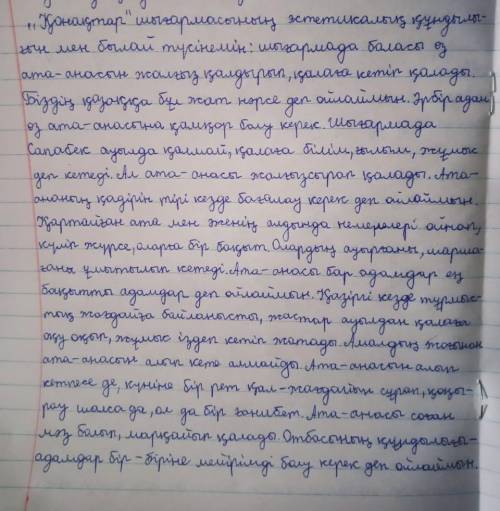 ,,Қонақтар" шығармасының эстетикалық құндылы-
ғын мен былай түсінемін: шығармада баласы өз
ата-анасын жалғыз қалдырып, қалаға кетіп қалады.
Біздің қазаққа бұл жат нәрсе деп ойлаймын. Әрбір адам
өз ата-анасына қамқор болу керек. Шығармада
Сапабек ауылда қалмай, қалаға білім, ғылым, жұмыс
деп кетеді. Ал ата-анасы жалғызсырап қалады. Ата-
ананың қадірін тірі кезде бағалау керек деп ойлаймын.
Қартайған ата мен әженің алдында немерелері ойнап,
күліп жүрсе, оларға бір бақыт. Олардың ауырғаны, шарша-
ғаны ұмытылып кетеді. Ата-анасы бар адамдар ең
бақытты адамдар деп ойлаймын. Қазіргі кезде тұрмыс-
тық жағдайға байланысты, жастар ауылдан қалаға
оқу оқып, жұмыс іздеп кетіп жатады. Амалдың жоғынан
ата-анасын алып кете алмайды. Ата-анасын алып
кетпесе де, күніне бір рет қал-жағдайын сұрап, қоңы-
рау шалса да, ол да бір ғанибет. Ата-анасы соған
мәз болып, марқайып қалады. Отбасының құндылығы-
адамдар бір-біріне мейірімді болу керек деп ойлаймын.